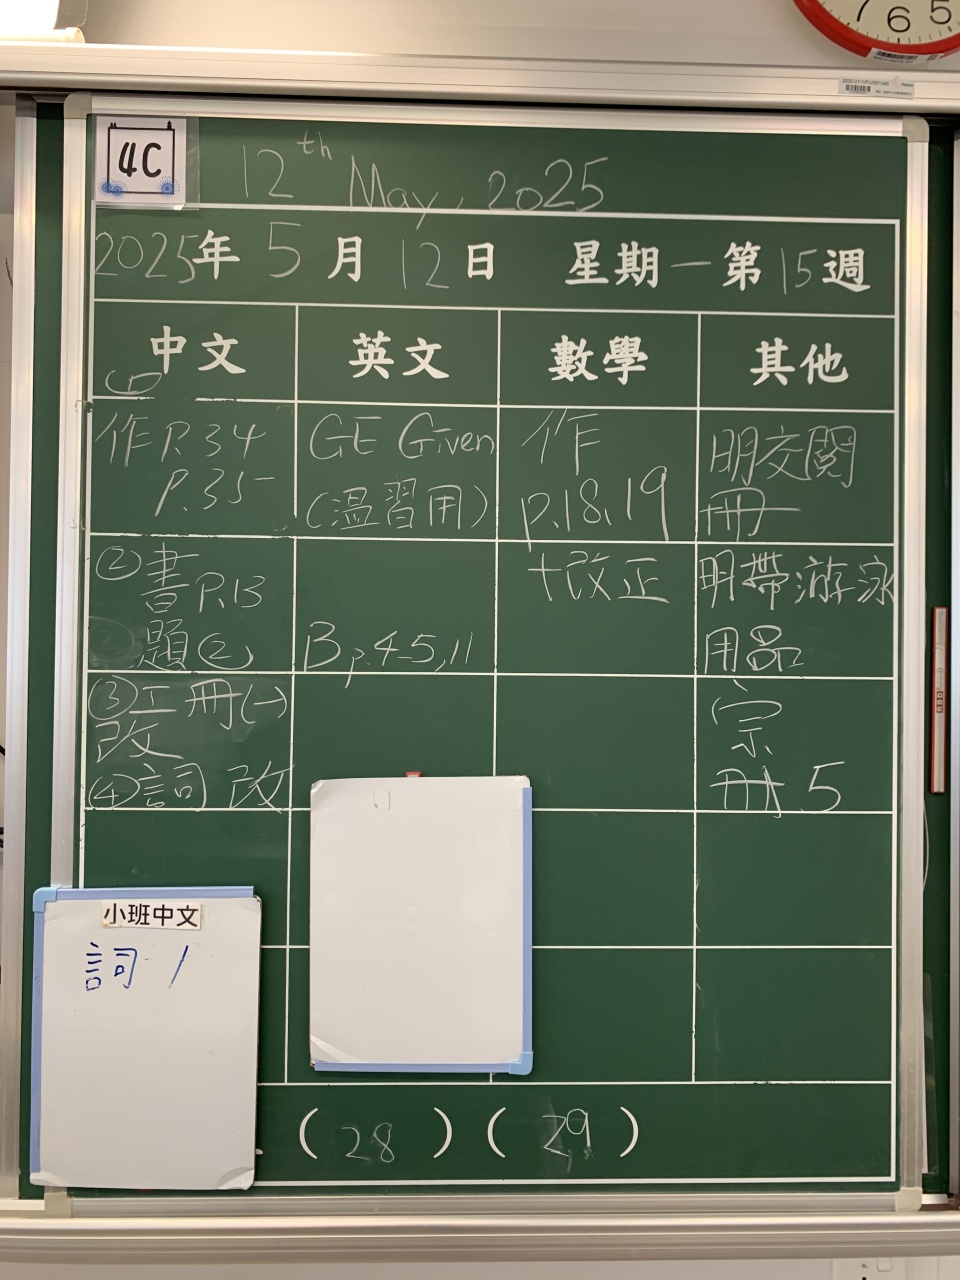 7 6 5
4C
12th May, 2025
2025年 5月 12日 星期一 第15週
中文 英文 數學 其他
作 P.34
P.35
GE Given
(溫習用)
作
p.18,19
+改正
明交閱
冊
②書 P.13
題②
B p.4-5,11
明帶游泳
用品
③工冊(一)
改
④詞 改
宗
冊.5
小班中文
詞 /
( 28 ) ( 29 )